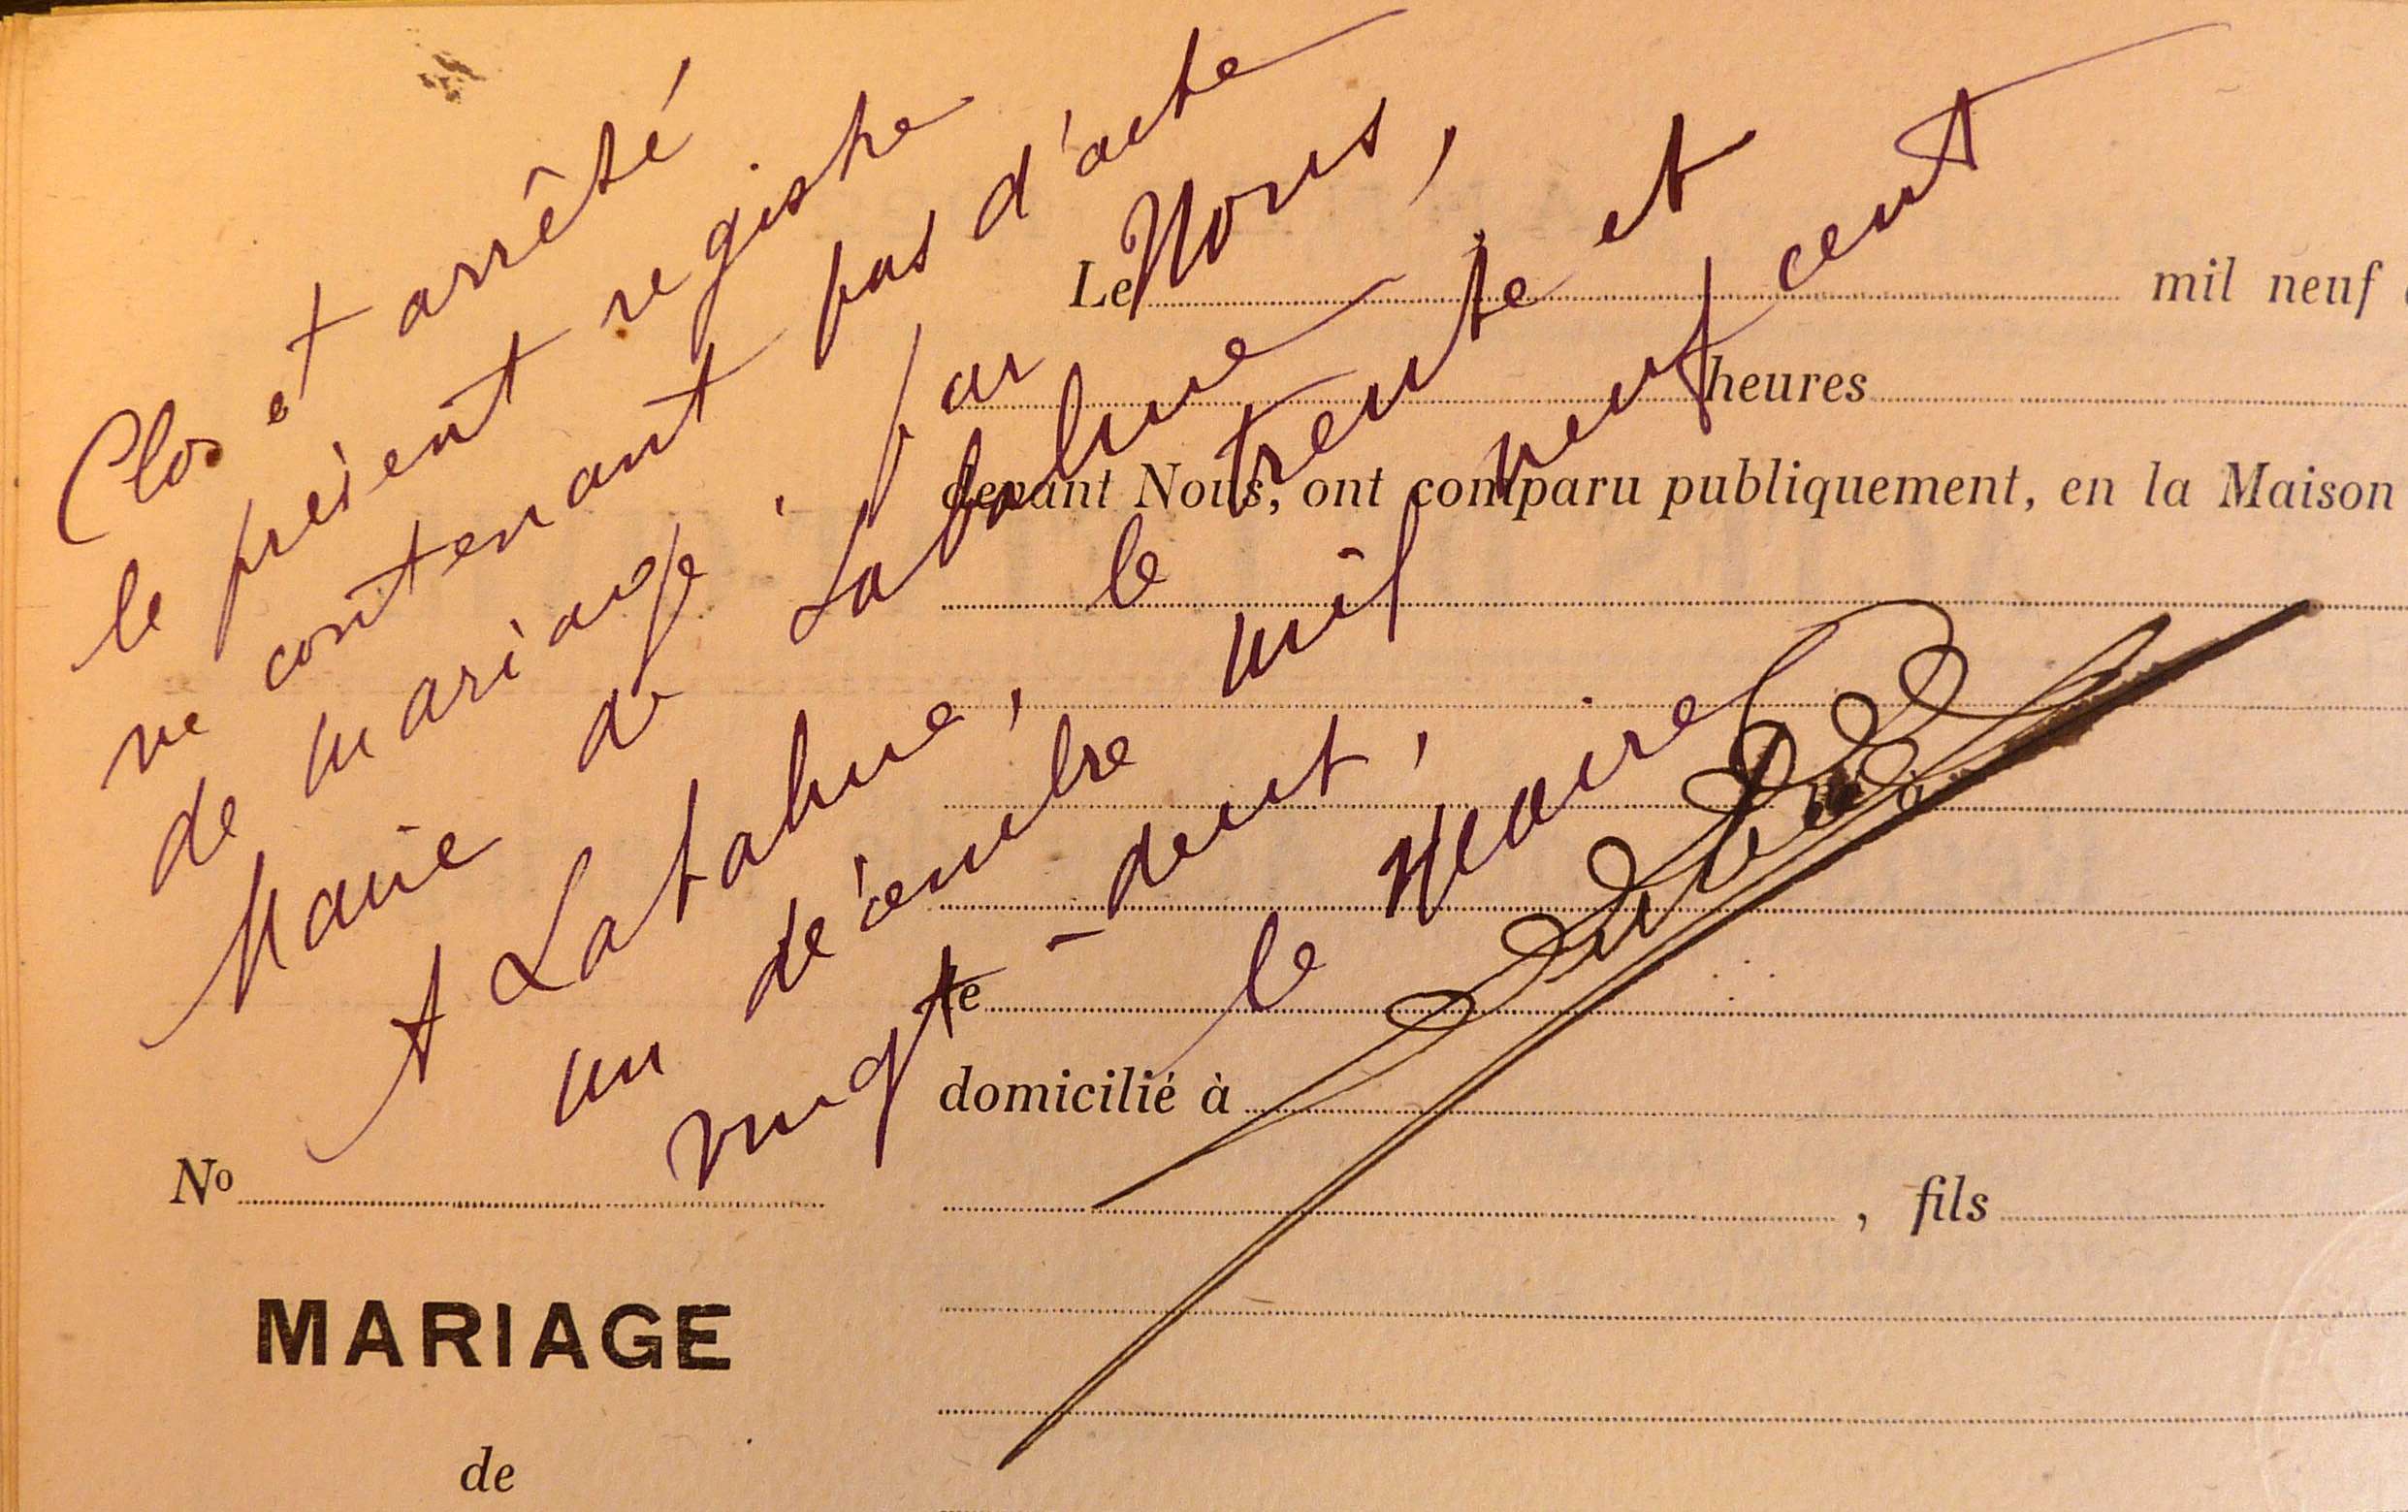 Clos et arrêté
le présent registre
ne contenant pas d'acte
de mariage. par Nous,
Maire de Labalme
A Labalme, le trente et
un décembre mil neuf cent
vingt-deux,
le Maire
Le mil neuf
heures
devant Nous, ont comparu publiquement, en la Maison
domicilié à
, fils
No
MARIAGE
de